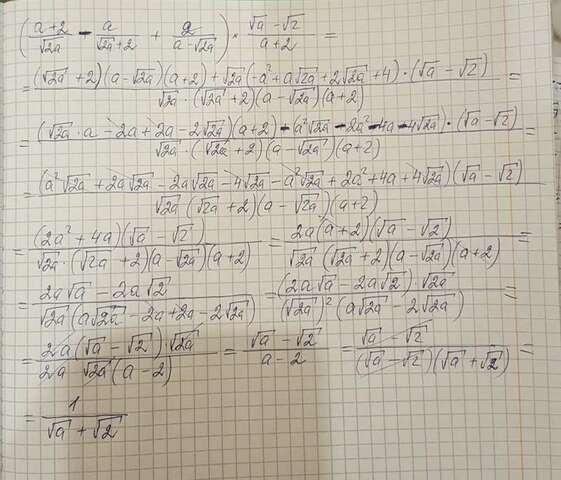 ((a+2)/√2a - a/(√2a+2) + 2/(a-√2a)) * (√a-√2)/(a+2) =
= ((√2a+2)(a-√2a)(a+2) + √2a(-a²+a√2a+2√2a+4)·(√a-√2))/(√2a·(√2a+2)(a-√2a)(a+2)) =
= ((√2a·a-2a+2a-2√2a)(a+2)-(a²√2a-2a²-4a-4√2a)·(√a-√2))/(√2a·(√2a+2)(a-√2a)(a+2)) =
= (a²√2a+2a√2a-2a√2a-4√2a-a²√2a+2a²+4a+4√2a)(√a-√2)/(√2a(√2a+2)(a-√2a)(a+2))
= (2a²+4a)(√a-√2)/(√2a·(√2a+2)(a-√2a)(a+2)) = 2a(a+2)(√a-√2)/(√2a(√2a+2)(a-√2a)(a+2)) =
= (2a√a-2a√2)/(√2a(a√2a-2a+2a-2√2a)) = (2a√a-2a√2)·√2a/((√2a)²(a√2a-2√2a)) =
= 2a(√a-√2)·√2a/(2a·√2a(a-2)) = (√a-√2)/(a-2) = (√a-√2)/((√a-√2)(√a+√2)) =
= 1/(√a+√2)